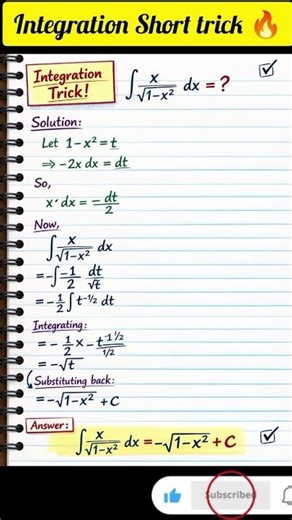 Integration Short trick 🔥
Integration Trick!
∫ x/√1-x² dx = ?
Solution:
Let 1-x² = t
⇒ -2x dx = dt
So,
x· dx = -dt/2
Now,
∫ x/√1-x² dx
= -∫ -1/2 dt/√t
= -1/2 ∫ t^-1/2 dt
Integrating:
= -1/2 × -t^1 1/2 / 1/2
= -√t
Substituting back:
= -√1-x² + C
Answer:
∫ x/√1-x² dx = -√1-x² + C
Subscribed